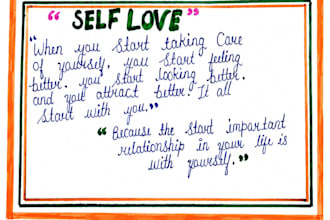 “ SELF LOVE ”
“When you start taking Care
of yourself, you start feeling
better, you start looking better,
and you attract better. It all
start with you.”
“ Because the start important
relationship in your life is
with yourself.”